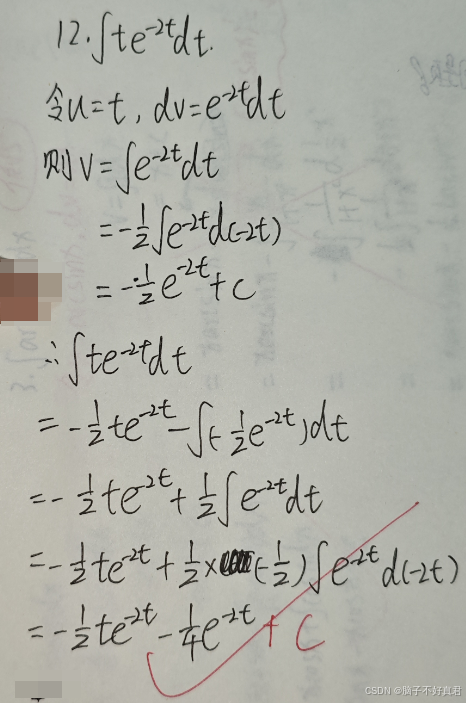 12. ∫te^{-2t}dt.
令u=t, dv=e^{-2t}dt
则v=∫e^{-2t}dt
=-\frac{1}{2}∫e^{-2t}d(-2t)
=-\frac{1}{2}e^{-2t}+c
∴∫te^{-2t}dt
=-\frac{1}{2}te^{-2t}-∫(-\frac{1}{2}e^{-2t})dt
=-\frac{1}{2}te^{-2t}+\frac{1}{2}∫e^{-2t}dt
=-\frac{1}{2}te^{-2t}+\frac{1}{2}×(-\frac{1}{2})∫e^{-2t}d(-2t)
=-\frac{1}{2}te^{-2t}-\frac{1}{4}e^{-2t}+C
CSDN @脑子不好真君